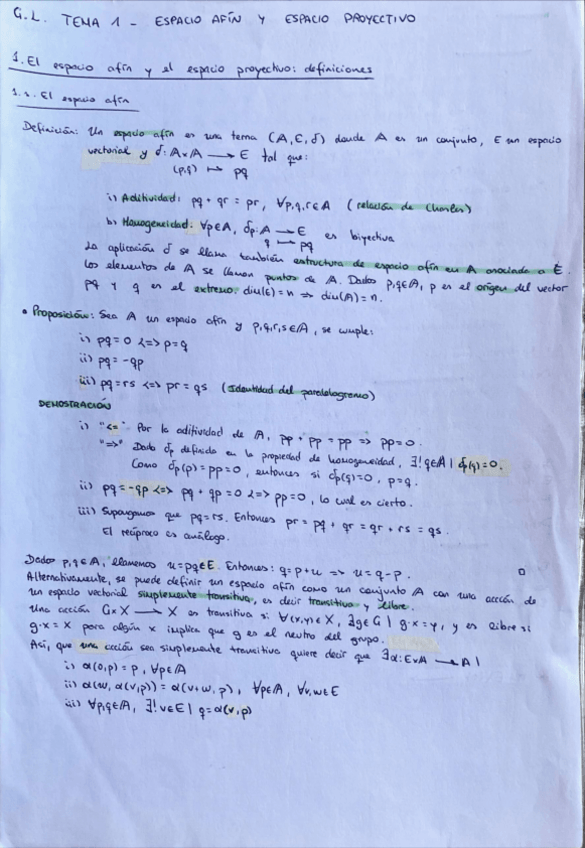 G.L. TEMA 1 - ESPACIO AFÍN Y ESPACIO PROYECTIVO
1. El espacio afín y el espacio proyectivo: definiciones
1.1. El espacio afín
Definición: Un espacio afín es una terna (A, E, δ) donde A es un conjunto, E un espacio
vectorial y δ: A×A → E tal que:
(p,q) ↦ pq
i) Aditividad: pq + qr = pr, ∀p,q,r∈A (relación de Chasles)
ii) Homogeneidad: ∀p∈A, δp: A → E es biyectiva
q ↦ pq
La aplicación δ se llama también estructura de espacio afín en A asociada a E.
Los elementos de A se llaman puntos de A. Dados p,q∈A, p es el origen del vector
pq y q es el extremo. dim(E)=n ⇒ dim(A)=n.
• Proposición: Sea A un espacio afín y p,q,r,s∈A, se cumple:
i) pq = 0 <=> p=q
ii) pq = -qp
iii) pq = rs <=> pr = qs (Identidad del paralelogramo)
DEMOSTRACIÓN
i) "<=" Por la aditividad de A, pp + pp = pp => pp=0.
"=>" Dado δp definida en la propiedad de homogeneidad, ∃!q∈A | δp(q)=0.
Como δp(p)=pp=0, entonces si δp(q)=0, p=q.
ii) pq = -qp <=> pq + qp = 0 <=> pp=0, lo cual es cierto.
iii) Supongamos que pq=rs. Entonces pr = pq + qr = qr + rs = qs.
El recíproco es análogo.
Dados p,q∈A, llamemos u=pq∈E. Entonces: q=p+u => u=q-p.
Alternativamente, se puede definir un espacio afín como un conjunto A con una acción de
un espacio vectorial simplemente transitiva, es decir transitiva y libre.
Una acción G×X → X es transitiva si ∀(x,y)∈X, ∃g∈G | g·x=y, y es libre si
g·x = x para algún x implica que g es el neutro del grupo.
Así, que una acción sea simplemente transitiva quiere decir que ∃α: E×A → A |
i) α(0,p) = p, ∀p∈A
ii) α(w, α(v,p)) = α(v+w, p), ∀p∈A, ∀v,w∈E
iii) ∀p,q∈A, ∃!v∈E | q=α(v,p)